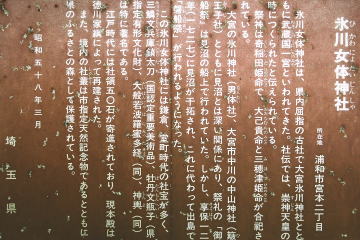 氷川女体神社
所在地 浦和市宮本二丁目
氷川女体神社は、県内屈指の古社で大宮氷川神社とと
もに武蔵国一宮といわれてきた。社伝では、崇神天皇の
時につくられたと伝えられている。
祭神は奇稲田姫命で、大己貴命と三穂津姫命が合祀さ
れている。
大宮の氷川神社(男体社)、大宮市中川の中山神社(
王子社)とともに見沼とは深い関係にあり、祭礼の「御
船祭」は見沼の船上で行われていた。しかし、享保一二
年(一七二七)に見沼が干拓され、これにかわって出島で
祭」が行われるようになった。
この氷川女体神社には鎌倉、室町時代の社宝が多く、
三鱗文兵庫鎖太刀(国認定重要美術品)、牡丹文瓶子(県
指定有形文化財)、大般若波羅蜜多経(同)、神輿(同)
は特に著名である。
江戸時代には社領五〇石が寄進されており、現本殿は
徳川家綱によって再建された。
また、境内の社叢は市指定天然記念物であるとともに
県のふるさとの森として保護されている。
昭和五十八年三月
埼玉県